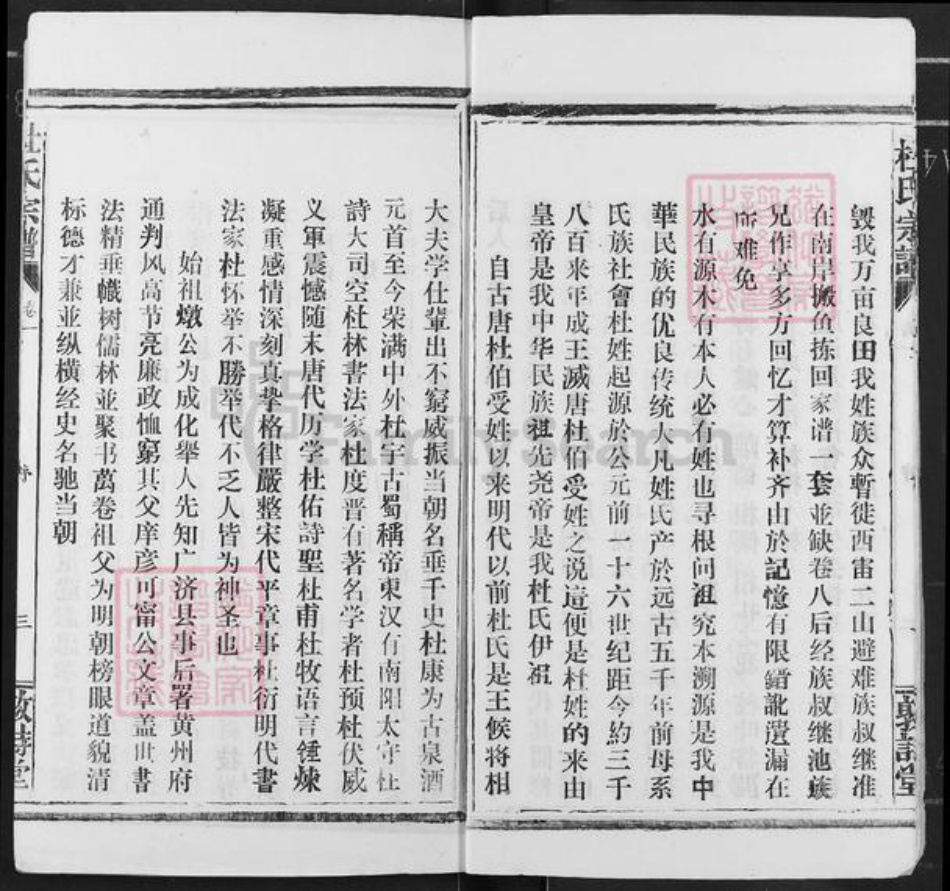 毁我万亩良田我姓族众暫徙西雷二山避难族叔继准
在南岸搬鱼拣回家谱一套並缺卷八后经族叔继池族
兄作享多方回忆才算补齐由於記憶有限錯訛遺漏在
所难免
水有源木有本人必有姓也寻根问祖究本溯源是我中
華民族的优良传统大凡姓氏产於远古五千年前母系
氏族社會杜姓起源於公元前一十六世纪距今約三千
八百来年成王滅唐杜伯受姓之说這便是杜姓的来由
皇帝是我中华民族祖先尧帝是我杜氏伊祖
自古唐杜伯受姓以来明代以前杜氏是王候将相
大夫学仕輩出不窮威振当朝名垂千史杜康为古泉酒
元首至今荣满中外杜宇古蜀稱帝東汉有南阳太守杜
詩大司空杜林書法家杜度晋有著名学者杜预杜伏威
义軍震憾随末唐代历学杜佑詩聖杜甫杜牧语言锤煉
凝重感情深刻真挚格律嚴整宋代平章事杜衍明代書
法家杜怀举不勝举代不乏人皆为神圣也
始祖燉公为成化舉人先知广济县事后署黄州府
通判风高节亮廉政恤窮其父庠彦可甯公文章盖世書
法精垂幟树儒林並聚书萬卷祖父为明朝榜眼道貌清
标德才兼並纵横经史名驰当朝
杜氏宗譜
卷一
三
FamilySearch